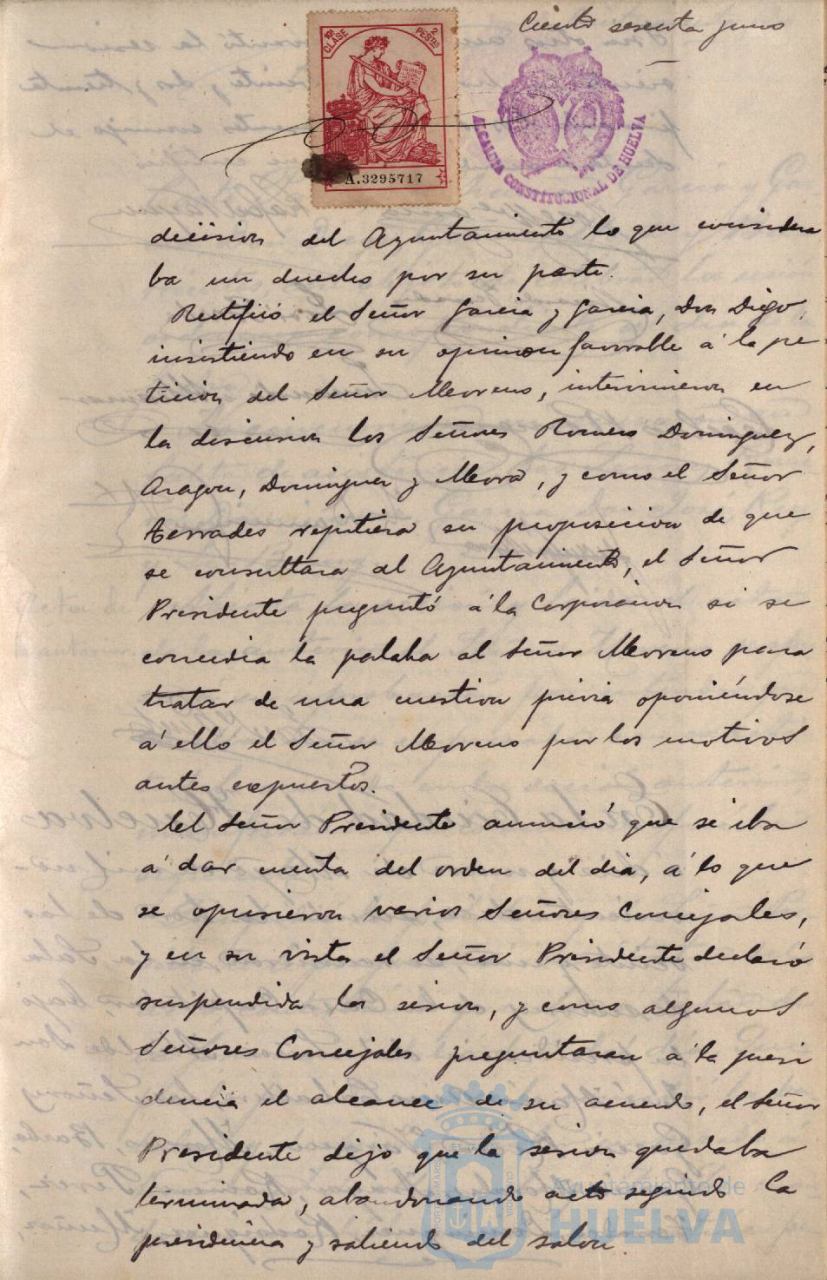 Ciento sesenta y uno
10ª CLASE
2 PESETAS
A.3295717
ALCALDIA CONSTITUCIONAL DE HUELVA
decision del Ayuntamiento lo que considera
ba un derecho por su parte.
Rectificó el Señor Garcia y Garcia, Don Diego,
insistiendo en su opinion favorable á la pe
ticion del Señor Moreno, intervinieron en
la discusion los Señores Romero Dominguez,
Aragon, Dominguez y Mora, y como el Señor
Terrades repitiera su proposicion de que
se consultara al Ayuntamiento, el Señor
Presidente preguntó á la Corporacion si se
concedia la palaba al Señor Moreno para
tratar de una cuestion previa oponiéndose
á ello el Señor Moreno por los motivos
antes expuestos.
El Señor Presidente anunció que se iba
á dar cuenta del orden del dia, á lo que
se opusieron varios Señores Concejales,
y en su vista el Señor Presidente declaró
suspendida la sesion, y como algunos
Señores Concejales preguntaran á la presi
dencia el alcance de su acuerdo, el Señor
Presidente dijo que la sesion quedaba
terminada, abandonando acto seguido la
presidencia y saliendo del salon.
Ayuntamiento de
HUELVA